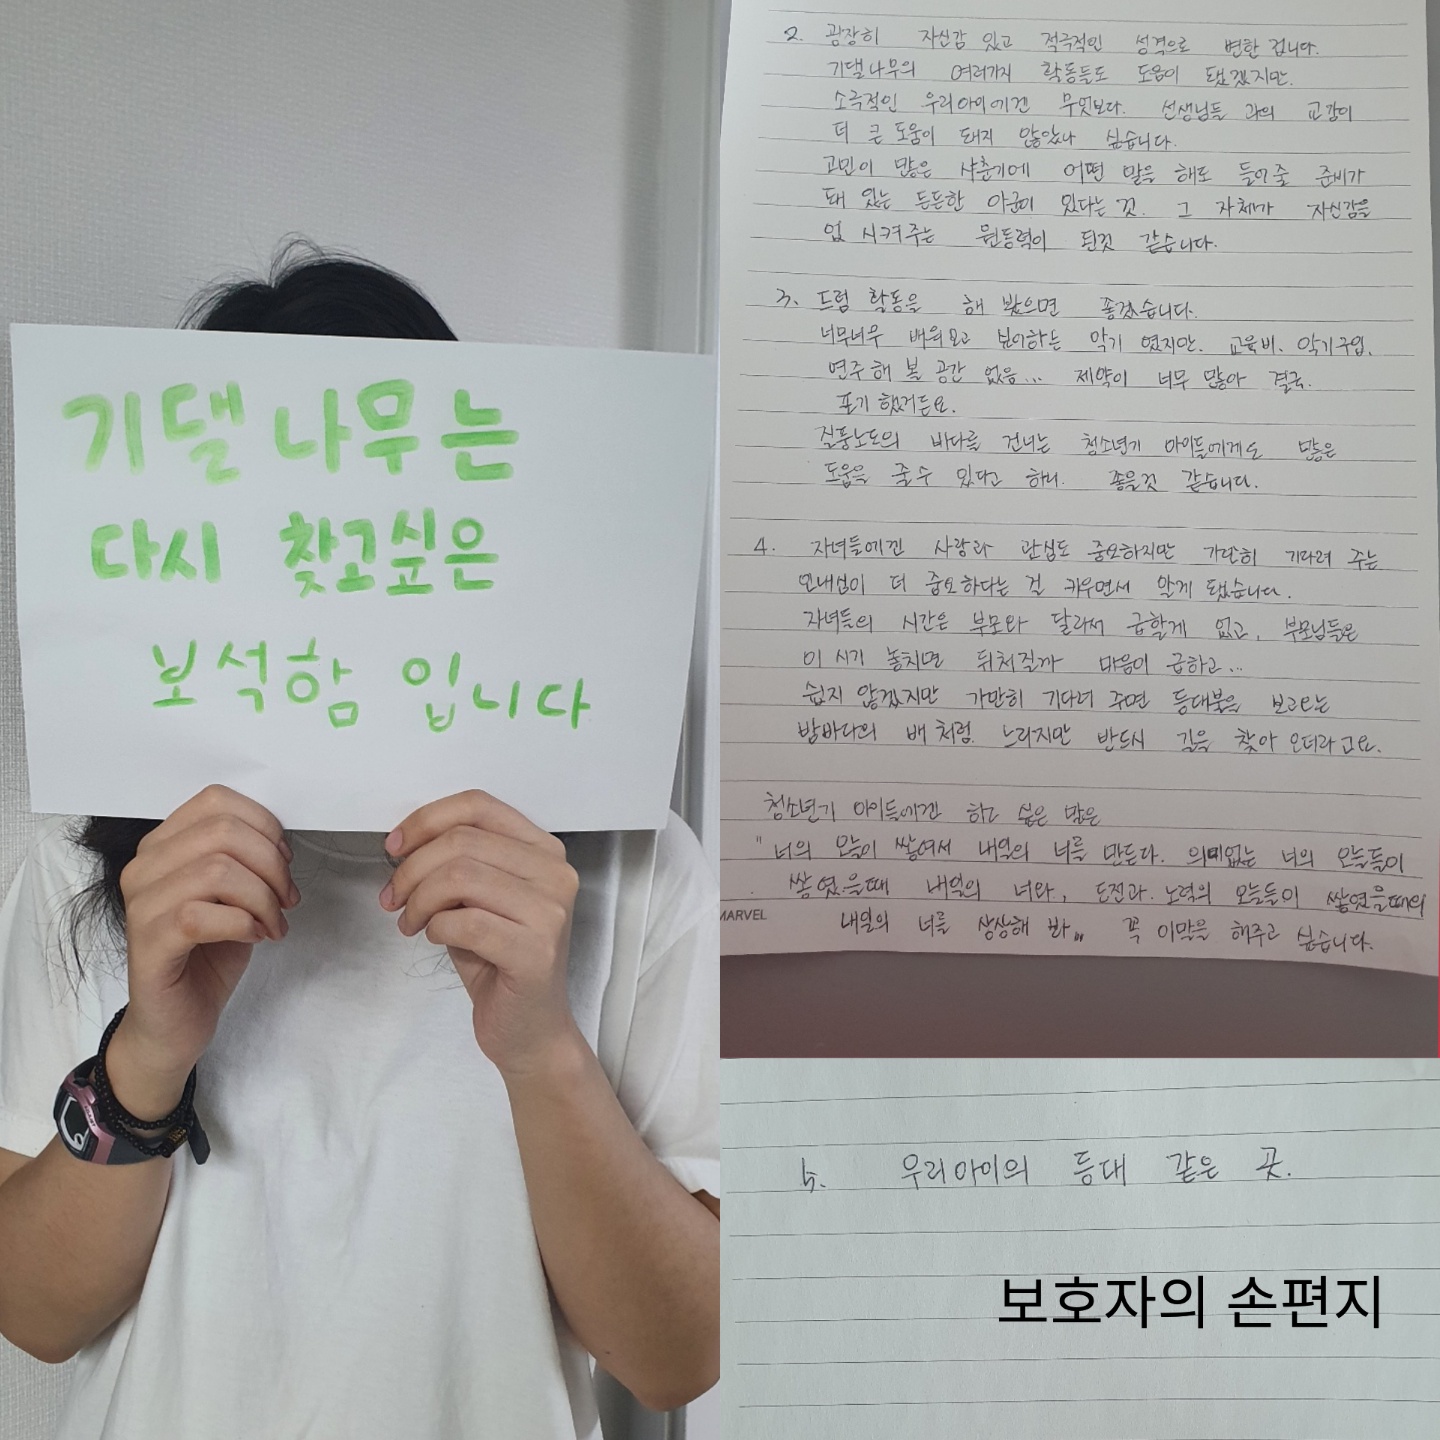 기댈나무는
다시 찾고싶은
보석함 입니다
2. 굉장히 자신감 있고 적극적인 성격으로 변한 겁니다.
기댈나무의 여러가지 학동들도 도움이 됐겠지만.
소극적인 우리아이에겐 무엇보다. 선생님들 과의 교감이
더 큰 도움이 돼지 않았나 싶습니다.
고민이 많은 사춘기에 어떤 말을 해도 들어줄 준비가
돼 있는 든든한 아군이 있다는 것. 그 자체가 자신감을
업 시켜주는 원동력이 된것 같습니다.
3. 드럼 활동을 해 봤으면 좋겠습니다.
너무너무 배워보고 싶어하는 악기 였지만. 교육비. 악기구입.
연주 해 볼 공간 없음... 제약이 너무 많아 결국.
포기 했거든요.
질풍노도의 바다를 건너는 청소년기 아이들에게도 많은
도움을 줄수 있다고 하니. 좋을것 같습니다.
4. 자녀들에겐 사랑과 관심도 중요하지만 가만히 기다려 주는
인내심이 더 중요하다는 걸 키우면서 알게 됐습니다.
자녀들의 시간은 부모와 달라서 급할게 없고, 부모님들은
이 시기 놓치면 뒤쳐질까 마음이 급하고...
쉽지 않겠지만 가만히 기다려 주면 등대불을 보고오는
밤바다의 배 처럼. 느리지만 반드시 길을 찾아 오더라고요.
청소년기 아이들에겐 하고 싶은 말은
"너의 오늘이 쌓여서 내일의 너를 만든다. 의미없는 너의 오늘들이
쌓였을때 내일의 너와, 도전과 노력의 오늘들이 쌓였을때의
내일의 너를 상상해 봐" 꼭 이말을 해주고 싶습니다.
MARVEL
5. 우리아이의 등대 같은 곳.
보호자의 손편지